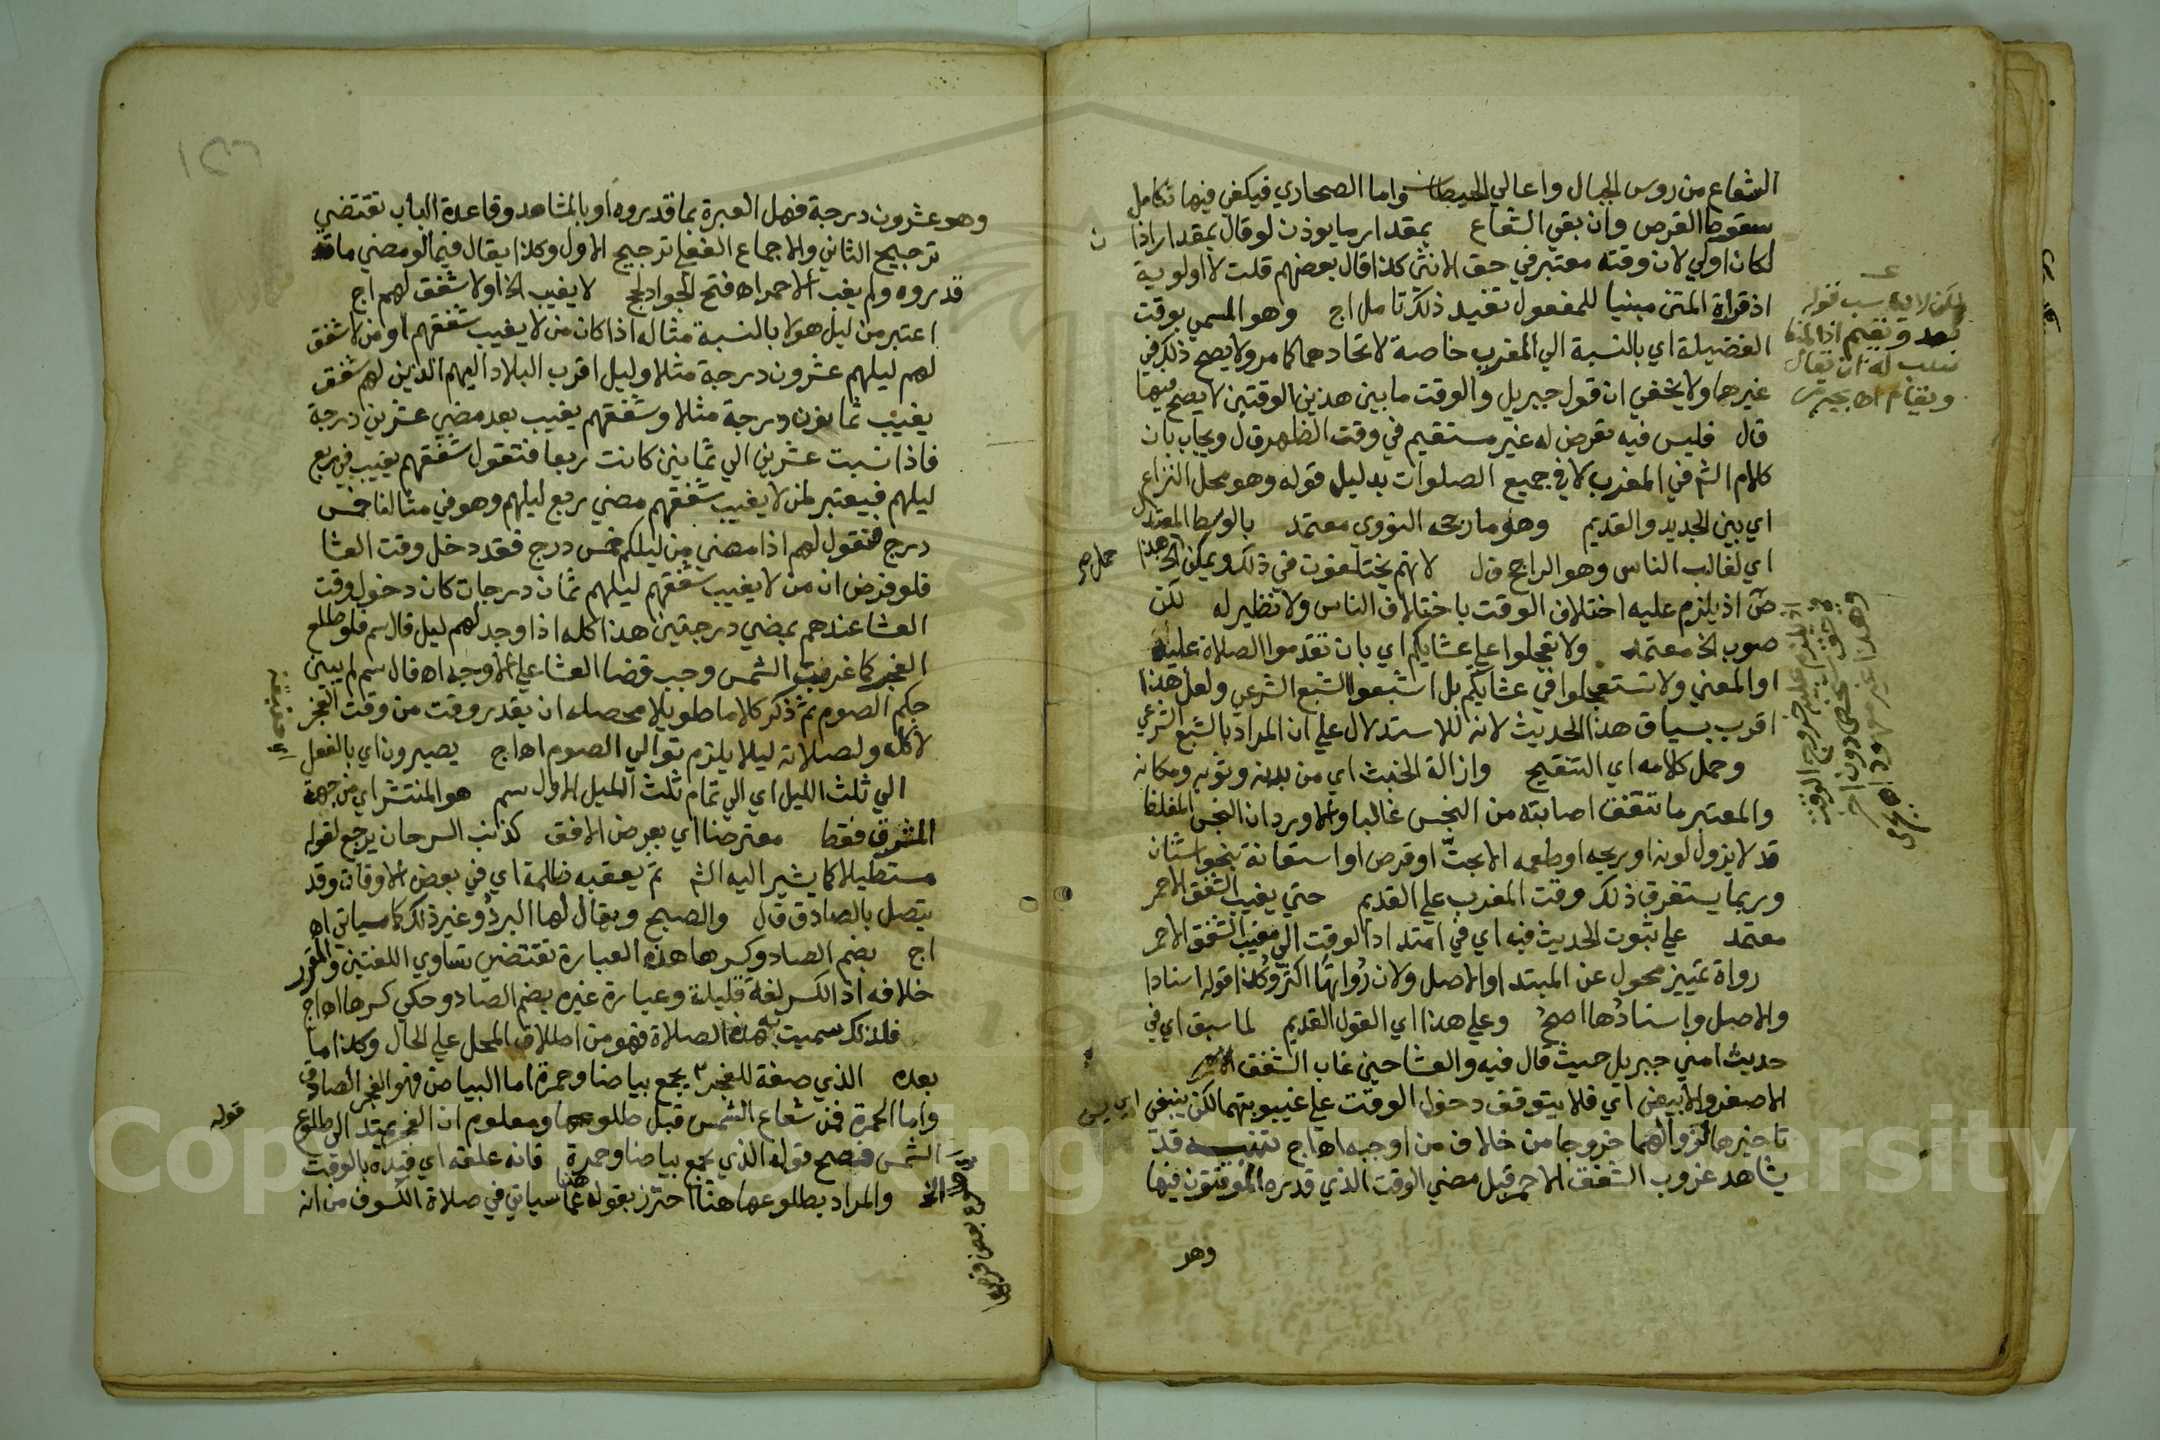 الشعاع من روس الجبال واعالي الحيطان واما الصحاري فيكفي فيها تكامل
سقوط القرص وان بقي الشعاع بمقدار ما يوذن لو قال بمقدار اذا
لكان اولي لان وقته معتبر في حق الانثي كذا قال بعضهم قلت لا اولوية
اذ قراة المتن مبنيا للمفعول تفيد ذلك تامل اج وهو المسمي بوقت
الفضيلة اي بالنسبة الي المغرب خاصة لاتحادهما كما مر ولا يصح ذلك في
غيرها ولا يخفي ان قول جبريل والوقت ما بين هذين الوقتين لا يصح فيها
قال فليس فيه تعرض له غير مستقيم في وقت الظهر ق ل ويجاب بان
كلام الش في المغرب لا في جميع الصلوات بدليل قوله وهو محل النزاع
اي بين الجديد والقديم وهو ما رجحه النووي معتمد بالوسط المعتدل
اي لغالب الناس وهو الراجح ق ل لانهم يختلفون في ذلك ويمكن الخ هذا
اذ يلزم عليه اختلاف الوقت باختلاف الناس ولا نظير له لكن
صوب الخ معتمد ولا تعجلوا علي عشايكم اي بان تقدموا الصلاة عليه
او المعني ولا تستعجلوا في عشايكم بل اشبعوا الشبع الشرعي ولعل هذا
اقرب بسياق هذا الحديث لانه للاستدلال علي ان المراد بالشبع الشرعي
وحمل كلامه اي التنقيح وازالة الخبث اي من بدنه وثوبه ومكانه
والمعتبر ما تتفق اصابته من النجس غالبا والا ورد ان النجس المغلظ
قد لا يزول لونه او ريحه او طعمه الا بحتّ او قرص او استعانة بنحو اشنان
وربما يستغرق ذلك وقت المغرب علي القديم حتي يغيب الشفق الاحمر
معتمد علي ثبوت الحديث فيه اي في امتداد الوقت الي مغيب الشفق الاحمر
رواة تمييز محول عن المبتدا والاصل ولان رُواتها اكثر وكذا قوله اسنادا
والاصل واسنادُها اصحُّ وعلي هذا اي القول القديم لما سبق اي في
حديث امني جبريل حيث قال فيه والعشا حين غاب الشفق الاحمر
الاصفر والابيض اي فلا يتوقف دخول الوقت علي غيبوبتهما لكن ينبغي
تاخيرها لزوالهما خروجا من خلاف من اوجبه اه اج تنبيه قد
يشاهد غروب الشفق الاحمر قبل مضي الوقت الذي قدره المؤقتون فيها
وهو
وهو عشرون درجة فهل العبرة بما قدروه او بالمشاهد وقاعدة الباب تقتضي
ترجيح الثاني والاجماع الفعلي ترجيح الاول وكذا يقال فيما لو مضي ما
قدروه ولم يغب الاحمر اه فتح الجواد لحج لا يغيب الخ او لا شفق لهم اج
اعتبر من ليل هولا بالنسبة مثاله اذا كان من لا يغيب شفقهم او من لا شفق
لهم ليلهم عشرون درجة مثلا وليل اقرب البلاد اليهم الذين لهم شفق
يغيب ثمانون درجة مثلا وشفقهم يغيب بعد مضي عشرين درجة
فاذا نسبت عشرين الي ثمانين كانت ربعا فتقول شفقهم يغيب في ربع
ليلهم فيعتبر لمن لا يغيب شفقهم مضي ربع ليلهم وهو في مثالنا خمس
درج فنقول لهم اذا مضي من ليلكم خمس درج فقد دخل وقت العشا
فلو فرض ان من لا يغيب شفقهم ليلهم ثمان درجات كان دخول وقت
العشا عندهم بمضي درجتين هذا كله اذا وجد لهم ليل قال سم فلو طلع
الفجر كما غربت الشمس وجب قضا العشا علي الاوجه اه قال سم لم يبين
حكم الصوم ثم ذكر كلاما طويلا محصله ان يقدر وقت من وقت الفجر
لاكله ولصلاته ليلا يلزم توالي الصوم اه اج يصيرون اي بالفعل
الي ثلث الليل اي الي تمام ثلث الليل الاول سم هو المنتشر اي من جهة
المشرق فقط معترضا اي بعرض الافق كذنب السرحان يرجع لقوله
مستطيلا كما يشير اليه الش ثم يعقبه ظلمة اي في بعض الاوقات وقد
يتصل بالصادق ق ل والصبح ويقال لها البرد وغير ذلك كما سياتي اه
اج بضم الصاد وكسرها هذه العبارة تقتضي تساوي اللغتين والمقرر
خلافه اذ الكسر لغة قليلة وعبارة غيره بضم الصاد وحكي كسرها اه اج
فلذلك سميت به هذه الصلاة فهو من اطلاق المحل علي الحال وكذا ما
بعده الذي صفة للفجر يجمع بياضا وحمرة اما البياض فهو الفجر الصادق
واما الحمرة فمن شعاع الشمس قبل طلوعها ومعلوم ان الفجر يمتد الي طلوع
الشمس فيصح قوله الذي يجمع بياضا وحمرة فانه علقه اي قيده بالوقت
الخ والمراد بطلوعها هنا احترز بقوله هنا عما سياتي في صلاة الكسوف من انه
قوله